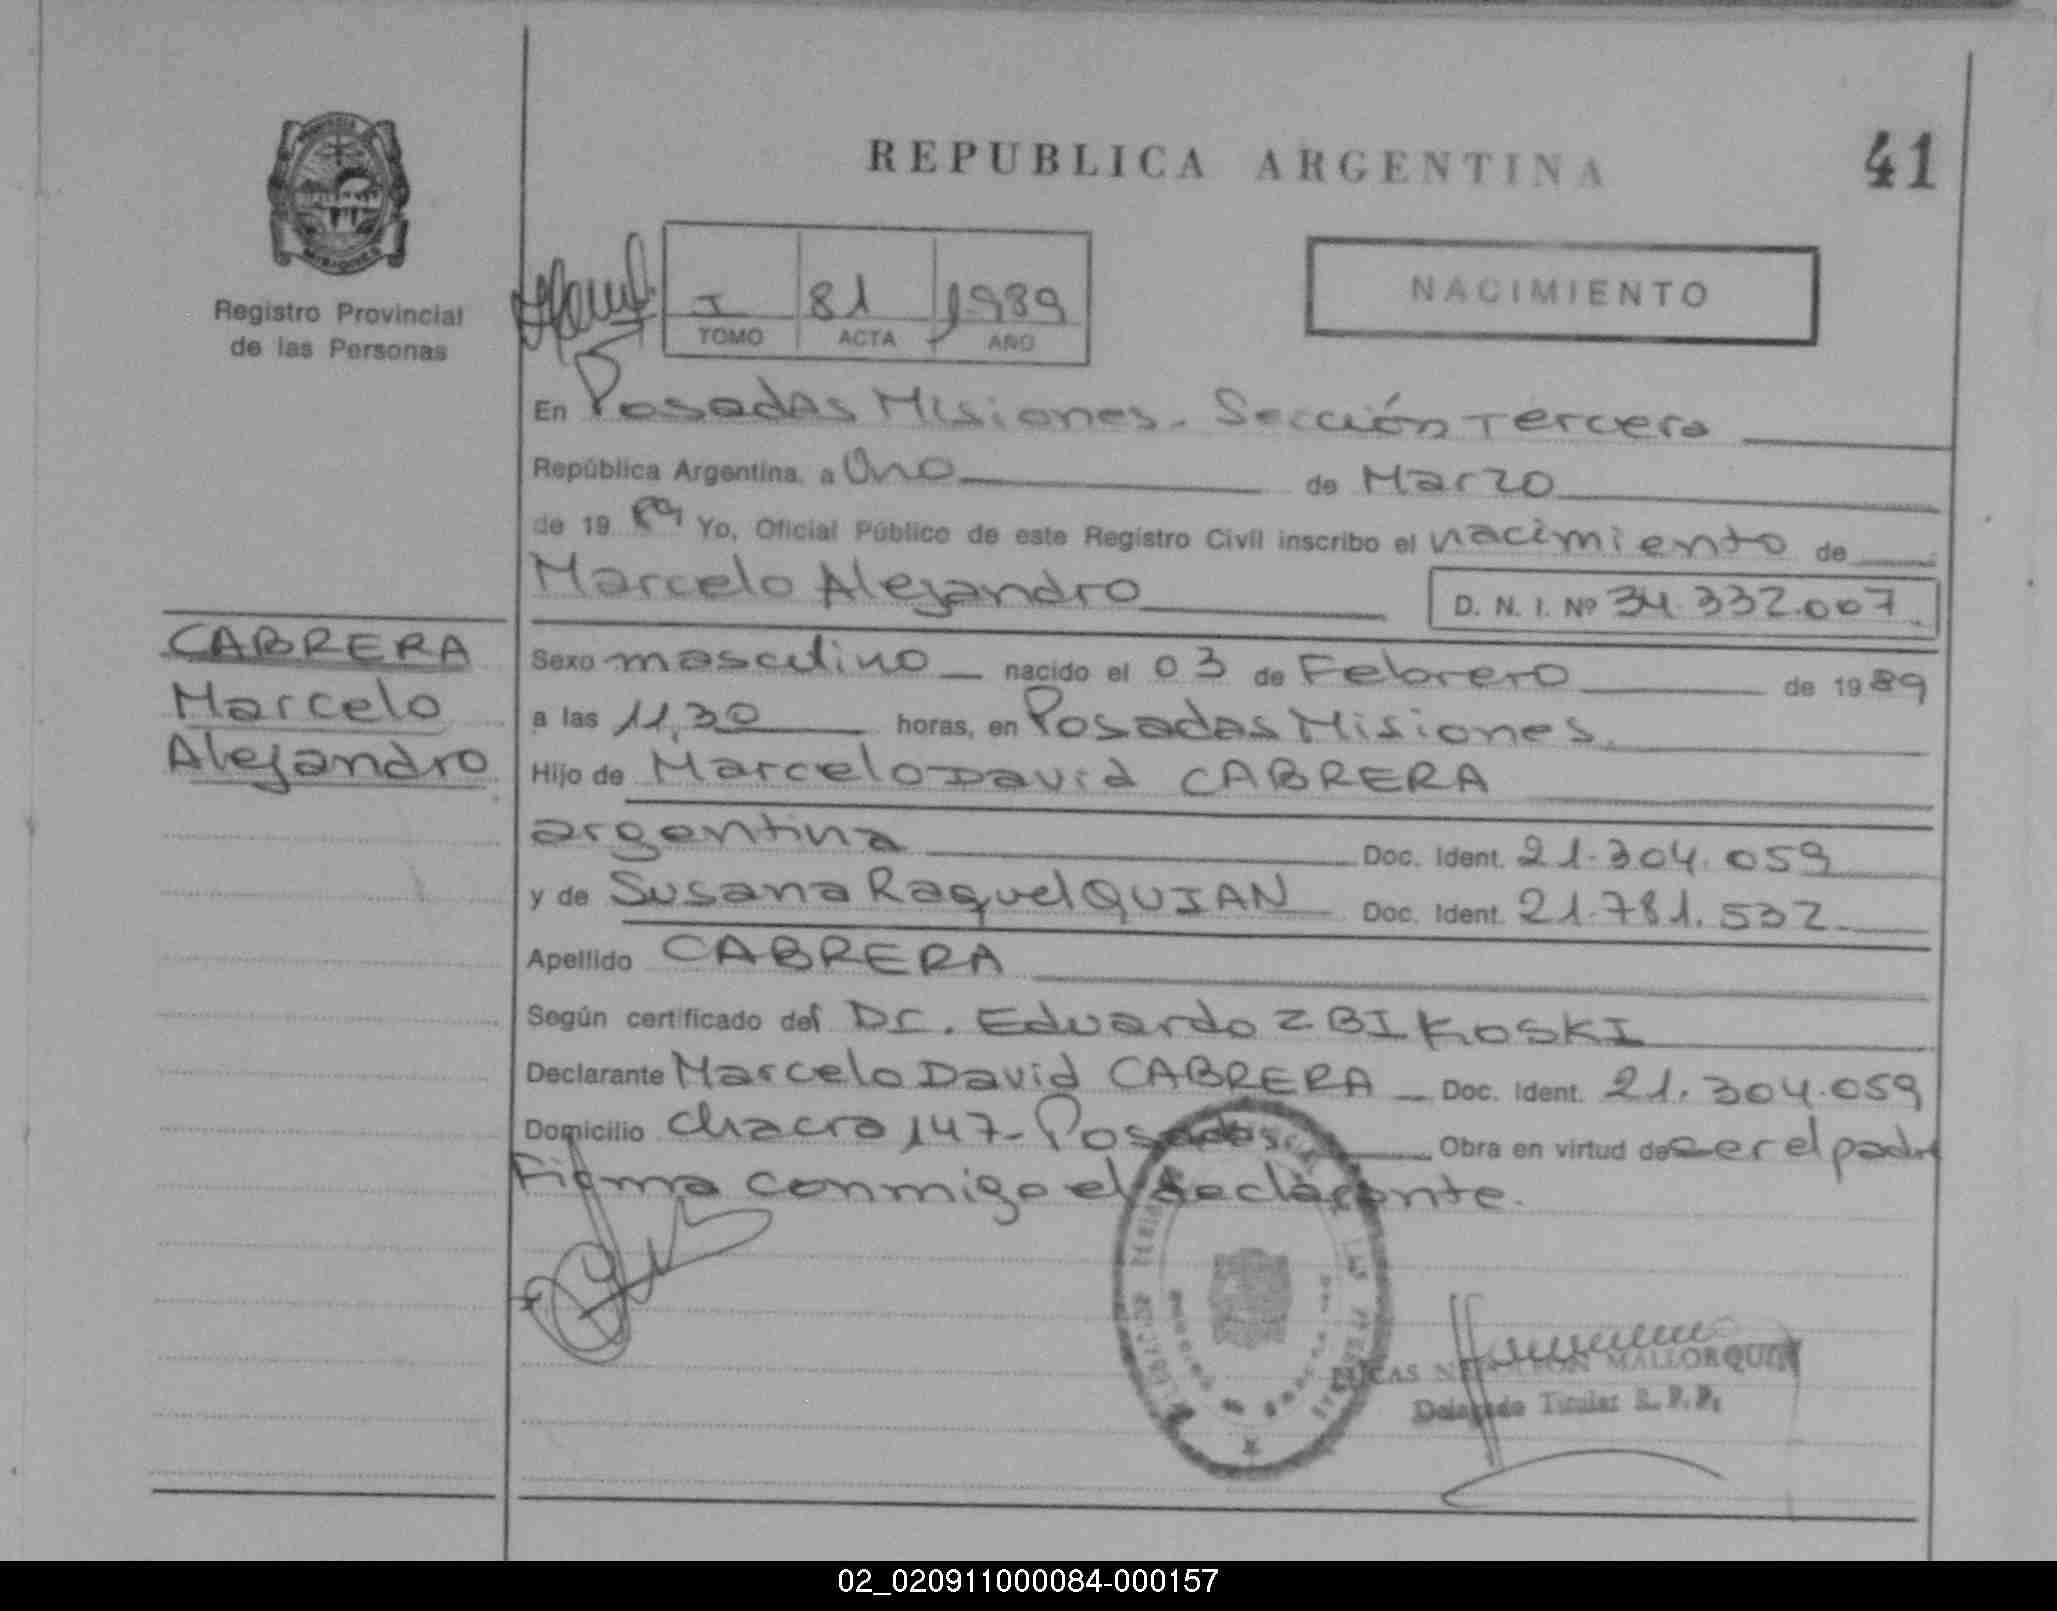 REPUBLICA ARGENTINA
41
Registro Provincial
de las Personas
I 81 1989
TOMO ACTA AÑO
NACIMIENTO
En Posadas Misiones. Sección Tercera
República Argentina, a Uno de Marzo
de 19 89 Yo, Oficial Público de este Registro Civil inscribo el nacimiento de
Marcelo Alejandro D. N. I. Nº 34.332.007
CABRERA
Marcelo
Alejandro
Sexo masculino nacido el 03 de Febrero de 1989
a las 11,30 horas, en Posadas Misiones.
Hijo de Marcelo David CABRERA
argentina Doc. Ident. 21.304.059
y de Susana Raquel QUIAN Doc. Ident. 21.781.532
Apellido CABRERA
Según certificado del Dr. Eduardo ZBIKOSKI
Declarante Marcelo David CABRERA Doc. Ident. 21.304.059
Domicilio Chacra 147- Posadas Obra en virtud de ser el padre
Firma conmigo el declarante.
MALLORQUIN
Delegado Titular R. P. P.
02_020911000084-000157